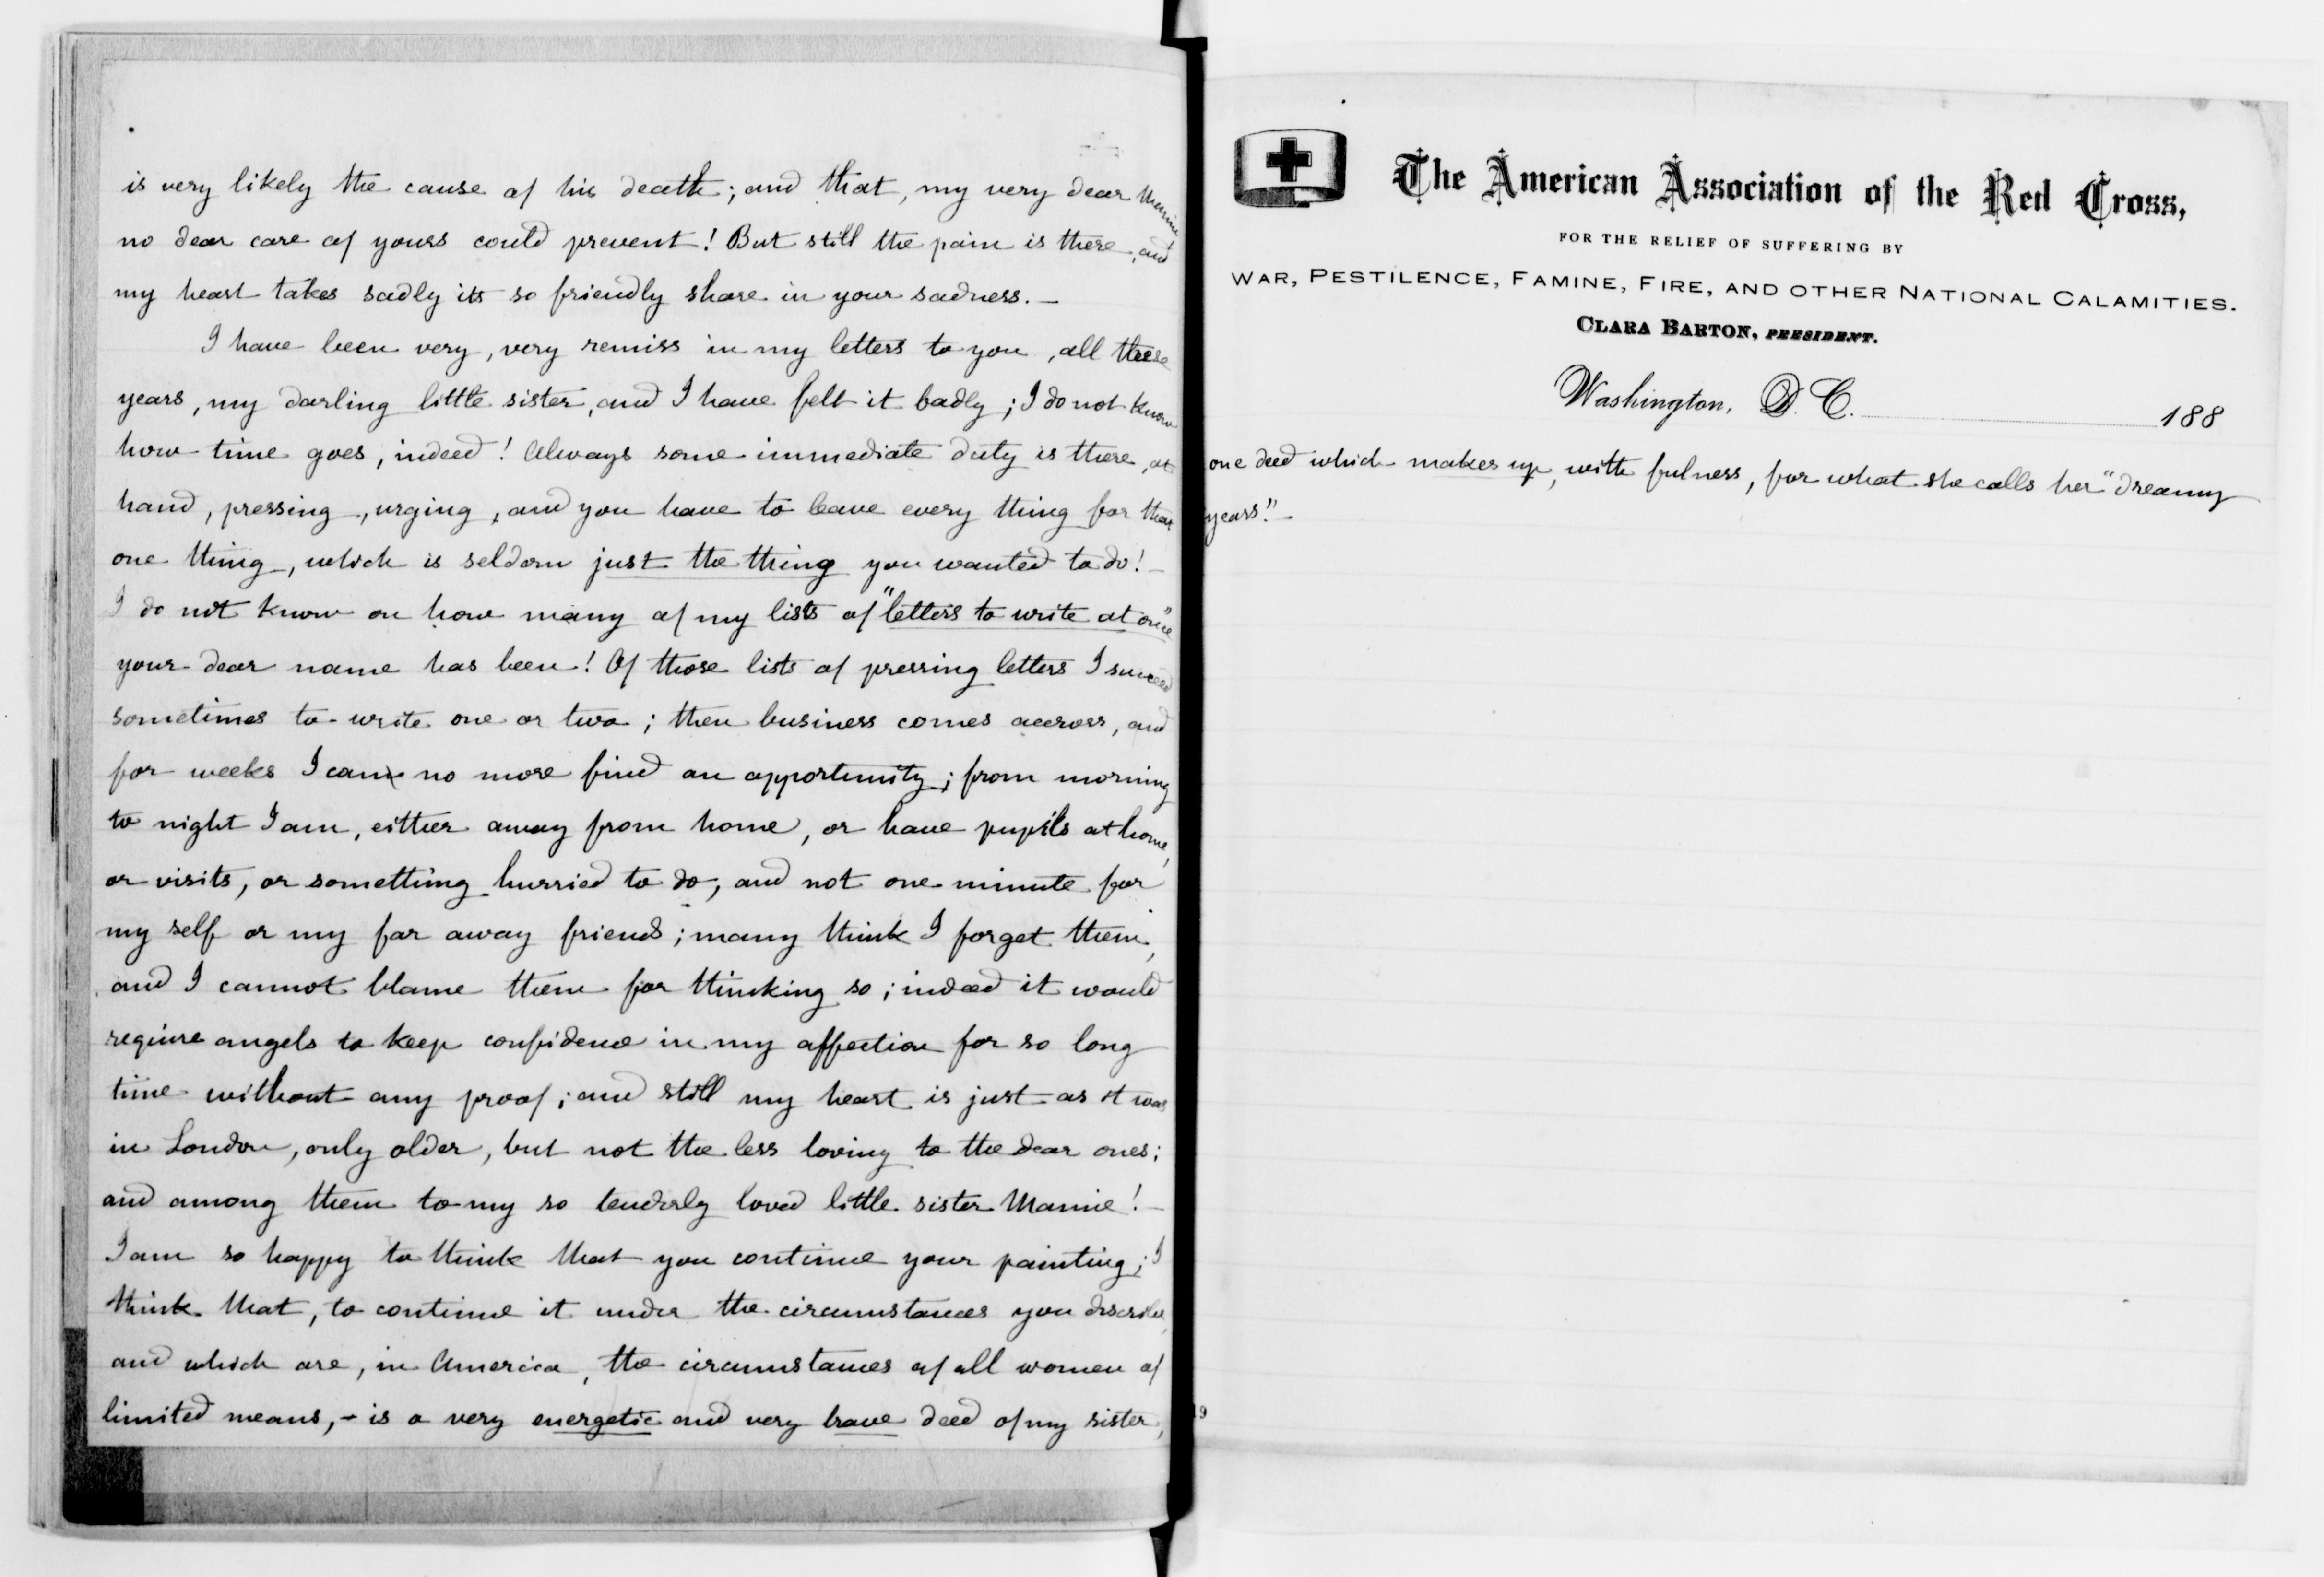 is very likely the cause of his death; and that, my very dear Mannie
no dear care of yours could prevent! But still the pain is there, and
my heart takes sadly its so friendly share in your sadness. —
I have been very, very remiss in my letters to you, all these
years, my darling little sister, and I have felt it badly; I do not know
how time goes, indeed! Always some immediate duty is there, at
hand, pressing, urging, and you have to leave every thing for that
one thing, which is seldom just the thing you wanted to do! —
I do not know on how many of my lists of "letters to write at once"
your dear name has been! Of those lists of pressing letters I succeed
sometimes to write one or two; then business comes accross, and
for weeks I can no more find an opportunity; from morning
to night I am, either away from home, or have pupils at home,
or visits, or something hurried to do, and not one minute for
my self or my far away friends; many think I forget them,
and I cannot blame them for thinking so; indeed it would
require angels to keep confidence in my affection for so long
time without any proof; and still my heart is just as it was
in London, only older, but not the less loving to the dear ones;
and among them to my so tenderly loved little sister Mannie! —
I am so happy to think that you continue your painting; I
think that, to continue it under the circumstances you describe,
and which are, in America, the circumstances of all women of
limited means, - is a very energetic and very brave deed of my sister,
19
The American Association of the Red Cross,
FOR THE RELIEF OF SUFFERING BY
WAR, PESTILENCE, FAMINE, FIRE, AND OTHER NATIONAL CALAMITIES.
CLARA BARTON, PRESIDENT.
Washington, D. C. 188
one deed which makes up, with fulness, for what she calls her "dreamy
years." —